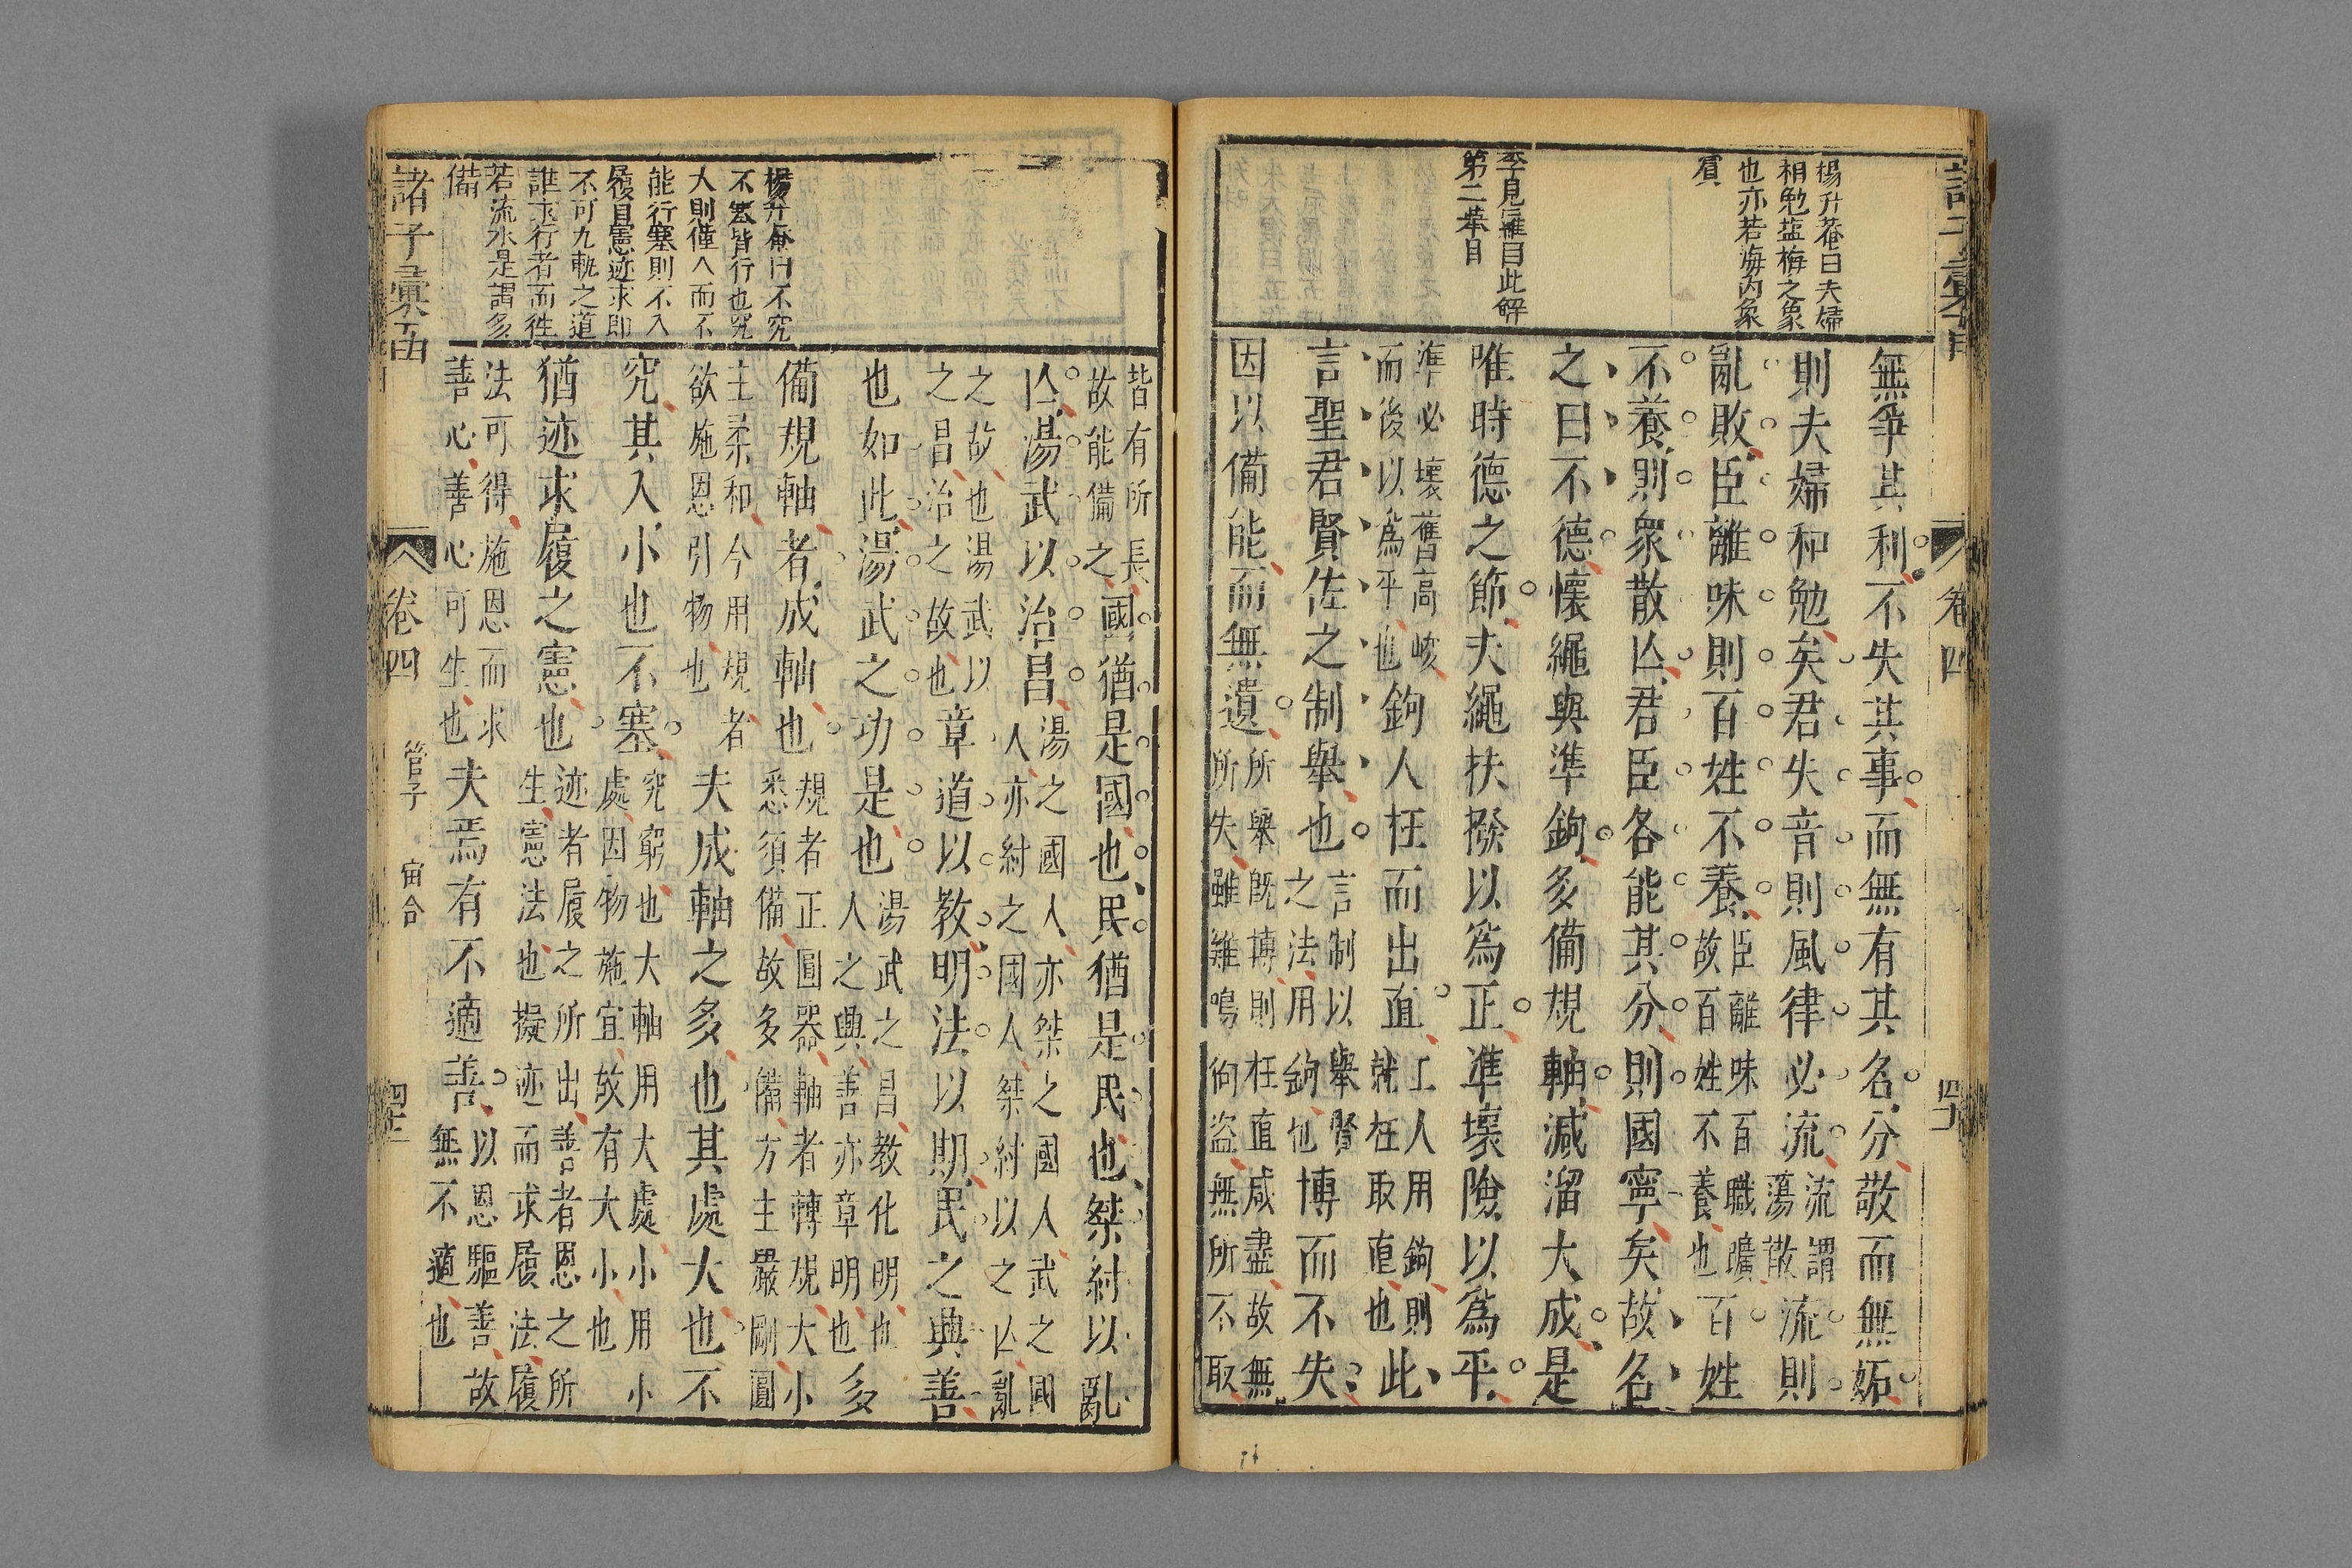 楊升菴曰夫婦
相勉塩梅之象
也亦若海内象
賓
李見羅曰此解
第二舉目
無爭其利不失其事而無有其名分敬而無妬
則夫婦和勉矣君失音則風律必流流謂蕩散流則
亂敗臣離味則百姓不養臣離味百職曠故百姓不養也百姓
不養則衆散亾君臣各能其分則國寧矣故名
之曰不德懷繩與準鉤多備規軸減溜大成是
唯時德之節夫繩扶撥以爲正準壞險以爲平
準必壞舊高峻而後以爲平也鉤人枉而出直工人用鉤則就枉取直也此
言聖君賢佐之制舉也言制以舉賢之法用鉤也博而不失
因以備能而無遺所舉既博則枉直咸盡故無所失雖雞鳴狗盜無所不取
卷四
諸子彙函
卷四
管子
宙合
楊升菴曰不究
不塞皆行也究
大則僅入而不
能行塞則不入
履目憲迹求即
不可九軌之道
誰求行者而徃
若流水是謂多
備
皆有所長故能備之國猶是國也民猶是民也桀紂以亂
亾湯武以治昌湯之國人亦桀之國人武之國人亦紂之國人桀紂以之亾亂
之故也湯武以之昌治之故也章道以教明法以期民之興善
也如此湯武之功是也湯武之昌教化明也人之興善亦章明也多
備規軸者成軸也規者正圓器軸者轉規大小悉須備故多備方主嚴剛圓
主柔和今用規者欲施恩引物也夫成軸之多也其處大也不
究其入小也不塞究窮也大軸用大處小用小處因物施宜故有大小也
猶迹求履之憲也迹者履之所出善者恩之所生憲法也擬迹而求履法履
法可得施恩而求善心善心可生也夫焉有不適善以恩驅善故無不適也